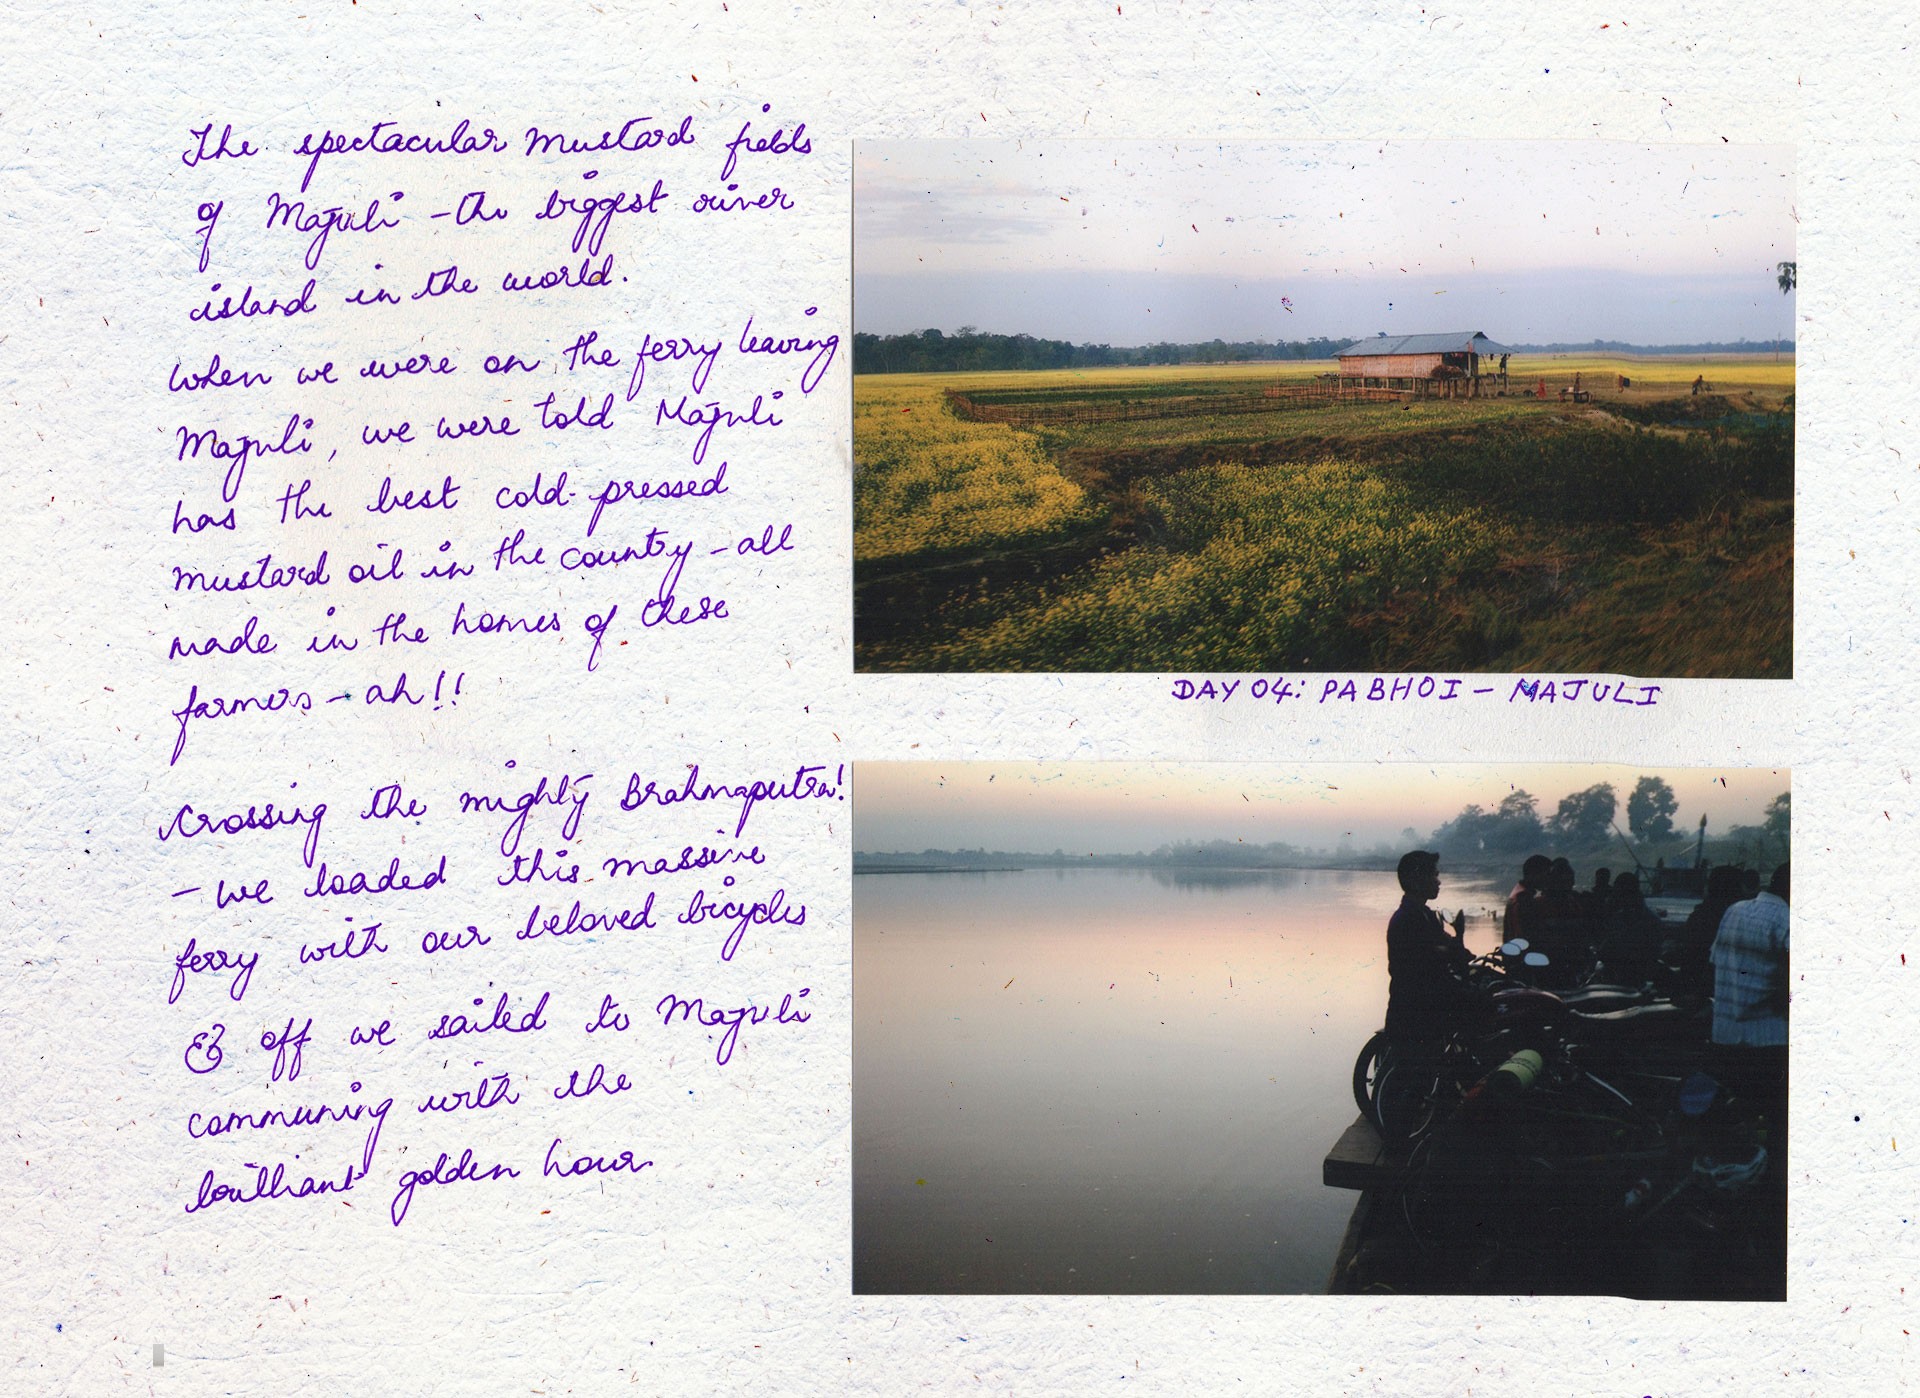 The spectacular mustard fields
of Majuli - the biggest river
island in the world.
When we were on the ferry leaving
Majuli, we were told Majuli
has the best cold-pressed
mustard oil in the county - all
made in the homes of these
farmers - ah!!
DAY 04: PABHOI - MAJULI
Crossing the mighty Brahmaputra!
- we loaded this massive
ferry with our beloved bicycles
& off we sailed to Majuli
communing with the
brilliant golden hour.